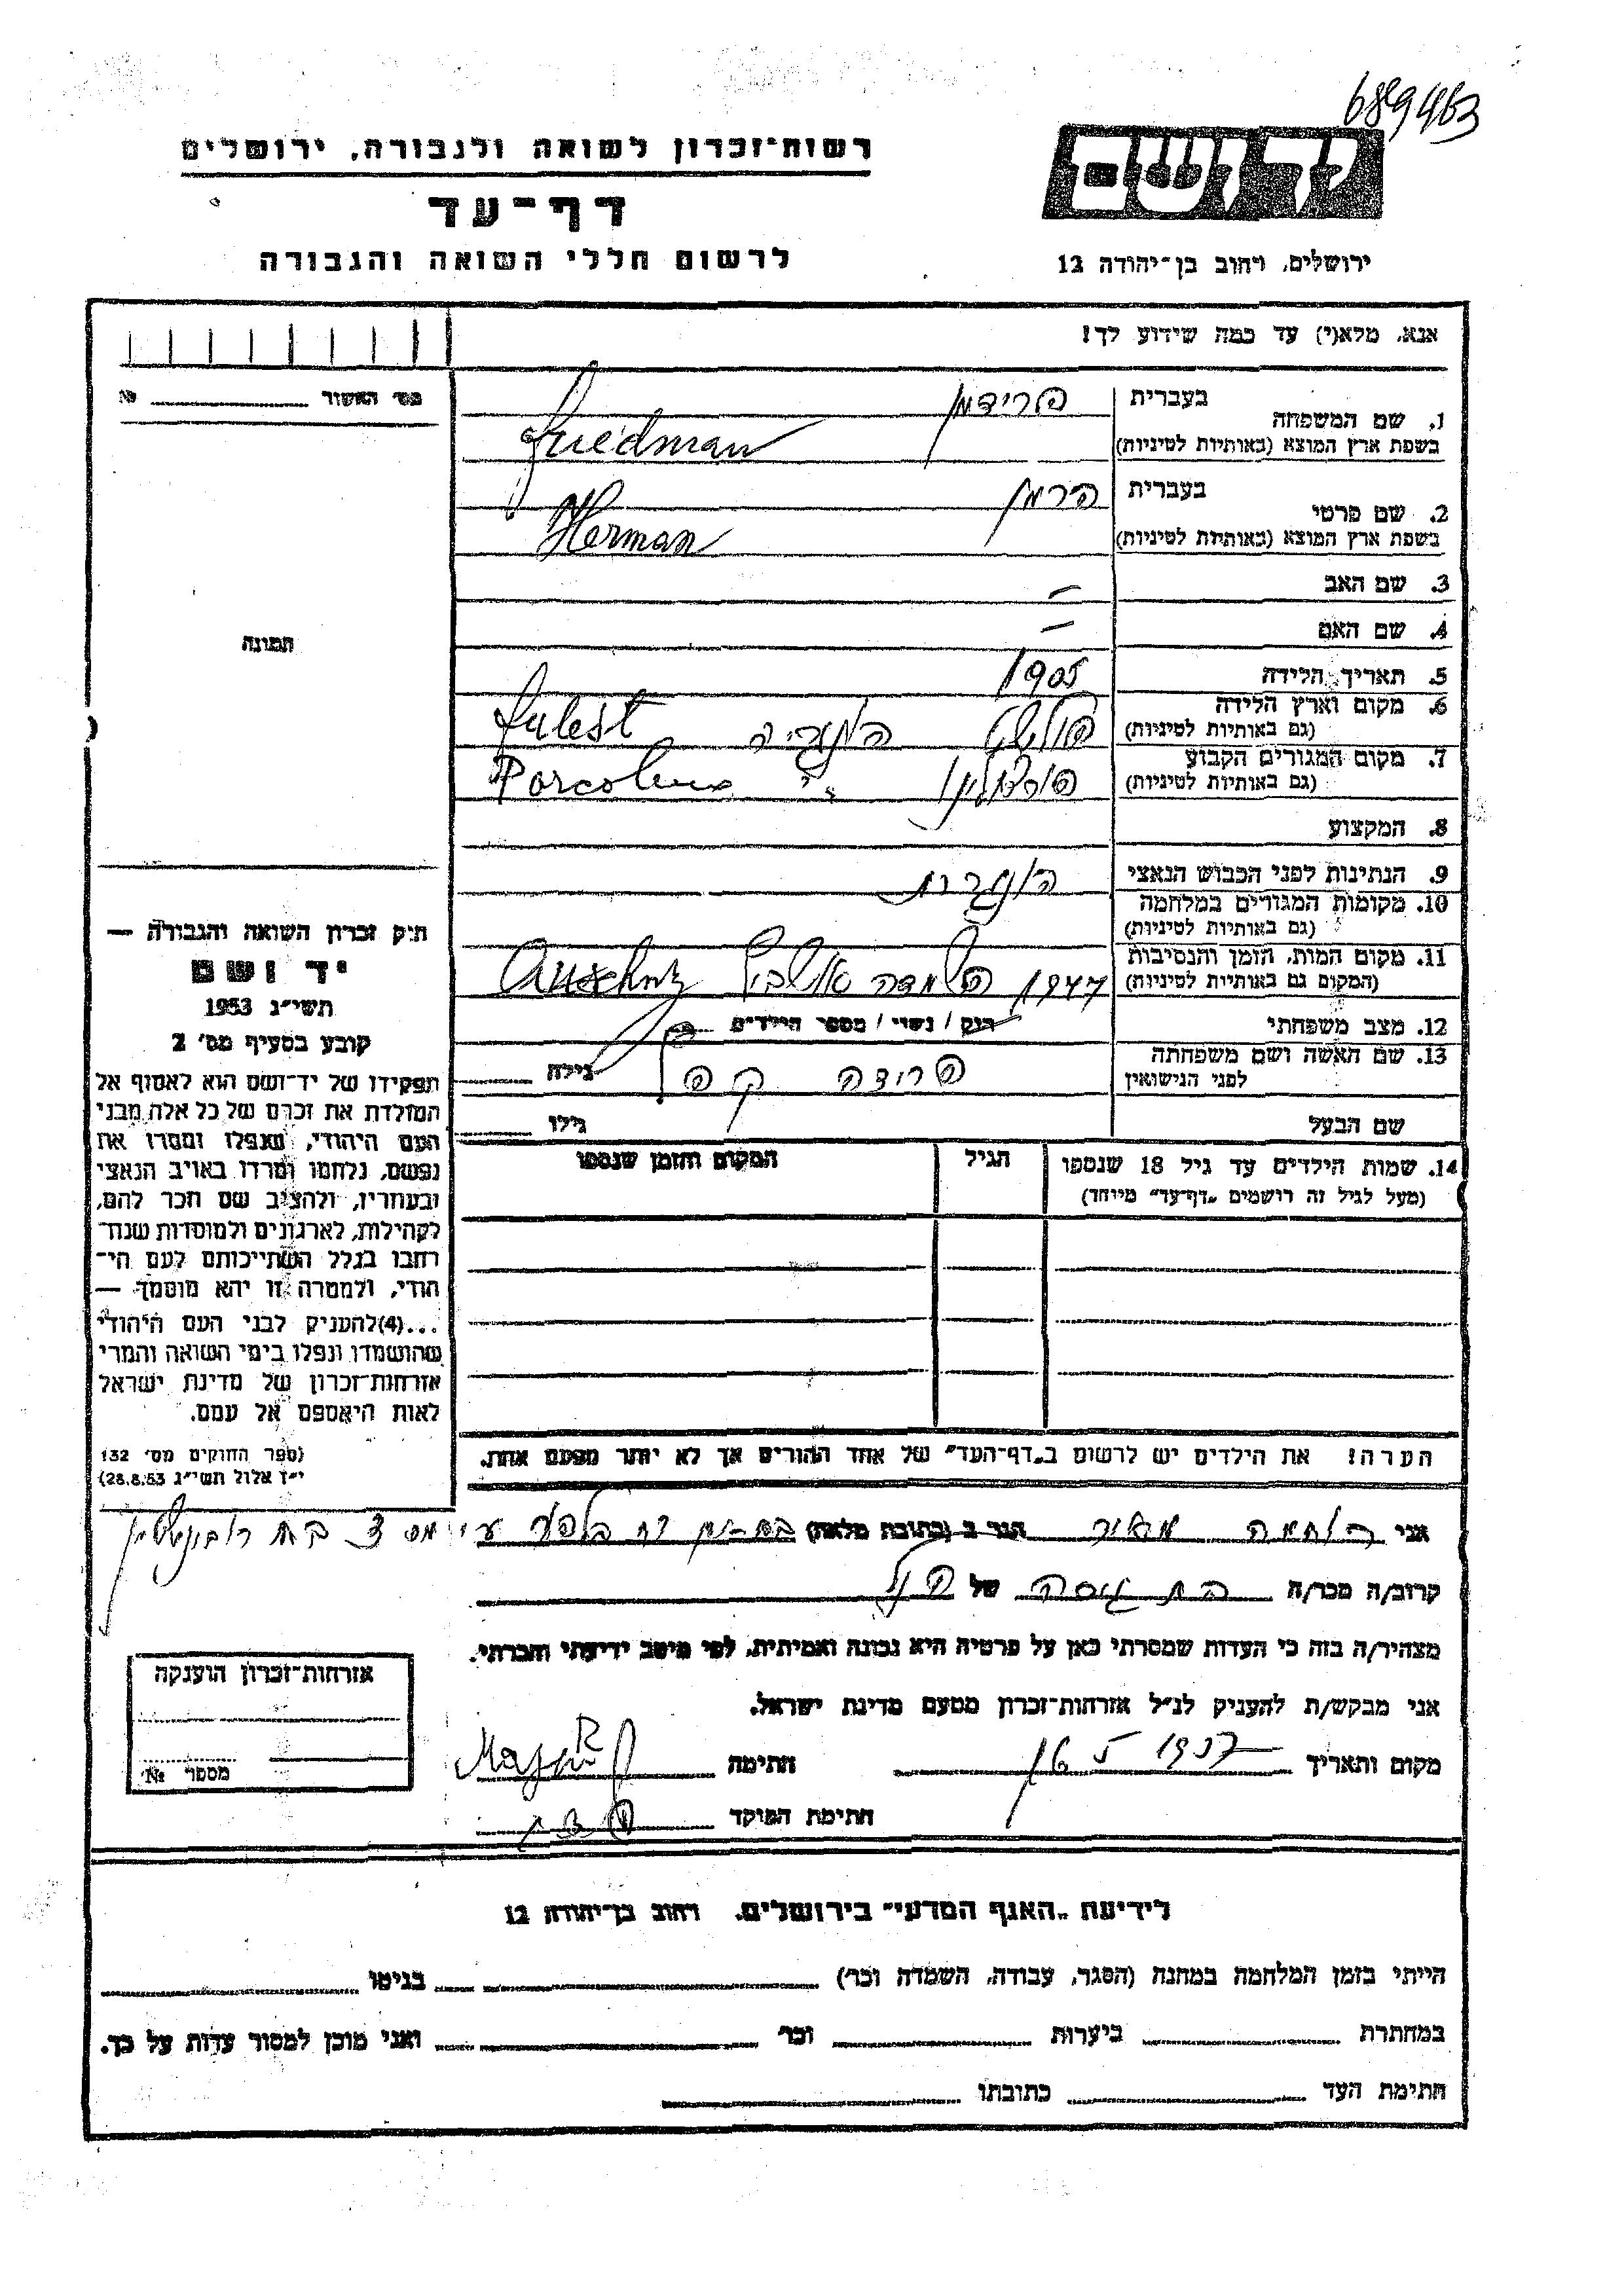 689463
רשות־זכרון לשואה ולגבורה, ירושלים
דף־עד
לרשום חללי השואה והגבורה
יד ושם
ירושלים, רחוב בן־יהודה 12
אנא, מלא(י) עד כמה שידוע לך!
מס׳ האשור № ______
1. שם המשפחה
בעברית פרידמן
בשפת ארץ המוצא (באותיות לטיניות) Friedman
2. שם פרטי
בעברית הרמן
בשפת ארץ המוצא (באותיות לטיניות) Herman
3. שם האב —
4. שם האם —
תמונה
5. תאריך הלידה 1905
6. מקום וארץ הלידה
(גם באותיות לטיניות) הונגריה
7. מקום המגורים הקבוע
(גם באותיות לטיניות)
8. המקצוע
9. הנתינות לפני הכבוש הנאצי הונגרית
10. מקומות המגורים במלחמה
(גם באותיות לטיניות)
11. מקום המות, הזמן והנסיבות
(המקום גם באותיות לטיניות) 1944 השמדה
12. מצב משפחתי רוק / נשוי / מספר הילדים
13. שם האשה ושם משפחתה
לפני הנישואין פרידה גילה
שם הבעל גילו
14. שמות הילדים עד גיל 18 שנספו
(מעל לגיל זה רושמים „דף־עד״ מיוחד)
הגיל
המקום והזמן שנספו
הערה! את הילדים יש לרשום ב„דף־העד״ של אחד ההורים אך לא יותר מפעם אחת.
חוק זכרון השואה והגבורה —
יד ושם
תשי״ג 1953
קובע בסעיף מס׳ 2
תפקידו של יד־ושם הוא לאסוף אל
המולדת את זכרם של כל אלה מבני
העם היהודי, שנפלו ומסרו את
נפשם, נלחמו ומרדו באויב הנאצי
ובעוזריו, ולהציב שם וזכר להם,
לקהילות, לארגונים ולמוסדות שנח־
רבו בגלל השתייכותם לעם הי־
הודי, ולמטרה זו יהא מוסמך —
...(4)להעניק לבני העם היהודי
שהושמדו ונפלו בימי השואה והמרי
אזרחות־זכרון של מדינת ישראל
לאות היאספם אל עמם.
(ספר החוקים מס׳ 132
י״ז אלול תשי״ג 28.8.53)
אני מאיר הגר ב (כתובת מלאה)
קרוב/ה מכר/ה בת גיסה של
מצהיר/ה בזה כי העדות שמסרתי כאן על פרטיה היא נכונה ואמיתית, לפי מיטב ידיעתי והכרתי.
אני מבקש/ת להעניק לנ״ל אזרחות־זכרון מטעם מדינת ישראל.
מקום ותאריך 1957 חתימה
חתימת הפוקד
אזרחות־זכרון הוענקה
מספר №
לידיעת „האגף המדעי״ בירושלים, רחוב בן־יהודה 12
הייתי בזמן המלחמה במחנה (הסגר, עבודה, השמדה וכו׳) ______ בגיטו ______
במחתרת ______ ביערות ______ וכו׳ ______ ואני מוכן למסור עדות על כך.
חתימת העד ______ כתובתו ______